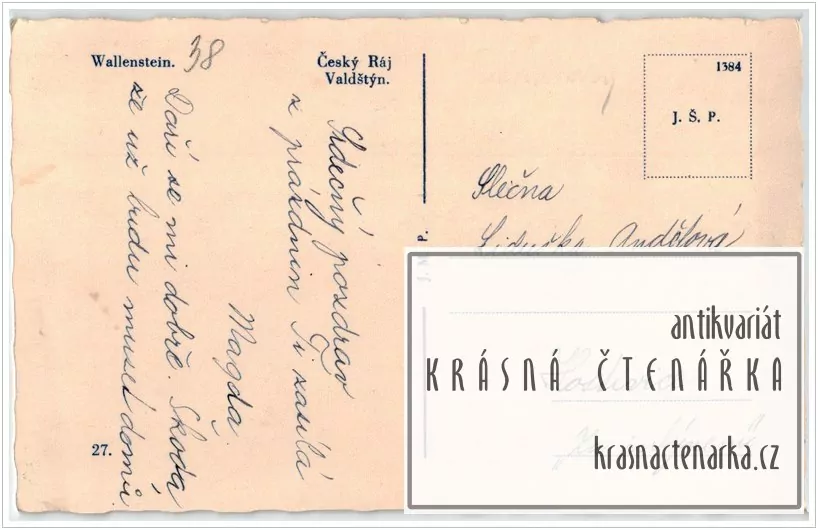 Wallenstein.
38
Český Ráj
Valdštýn.
1384
J. Š. P.
Srdečný pozdrav
z prázdnin Ti zasílá
Magda.
Daří se mi dobře. Škoda
že už budu muset domů.
27.
Slečna
Liduška Andělová
antikvariát
KRÁSNÁ ČTENÁŘKA
krasnactenarka.cz